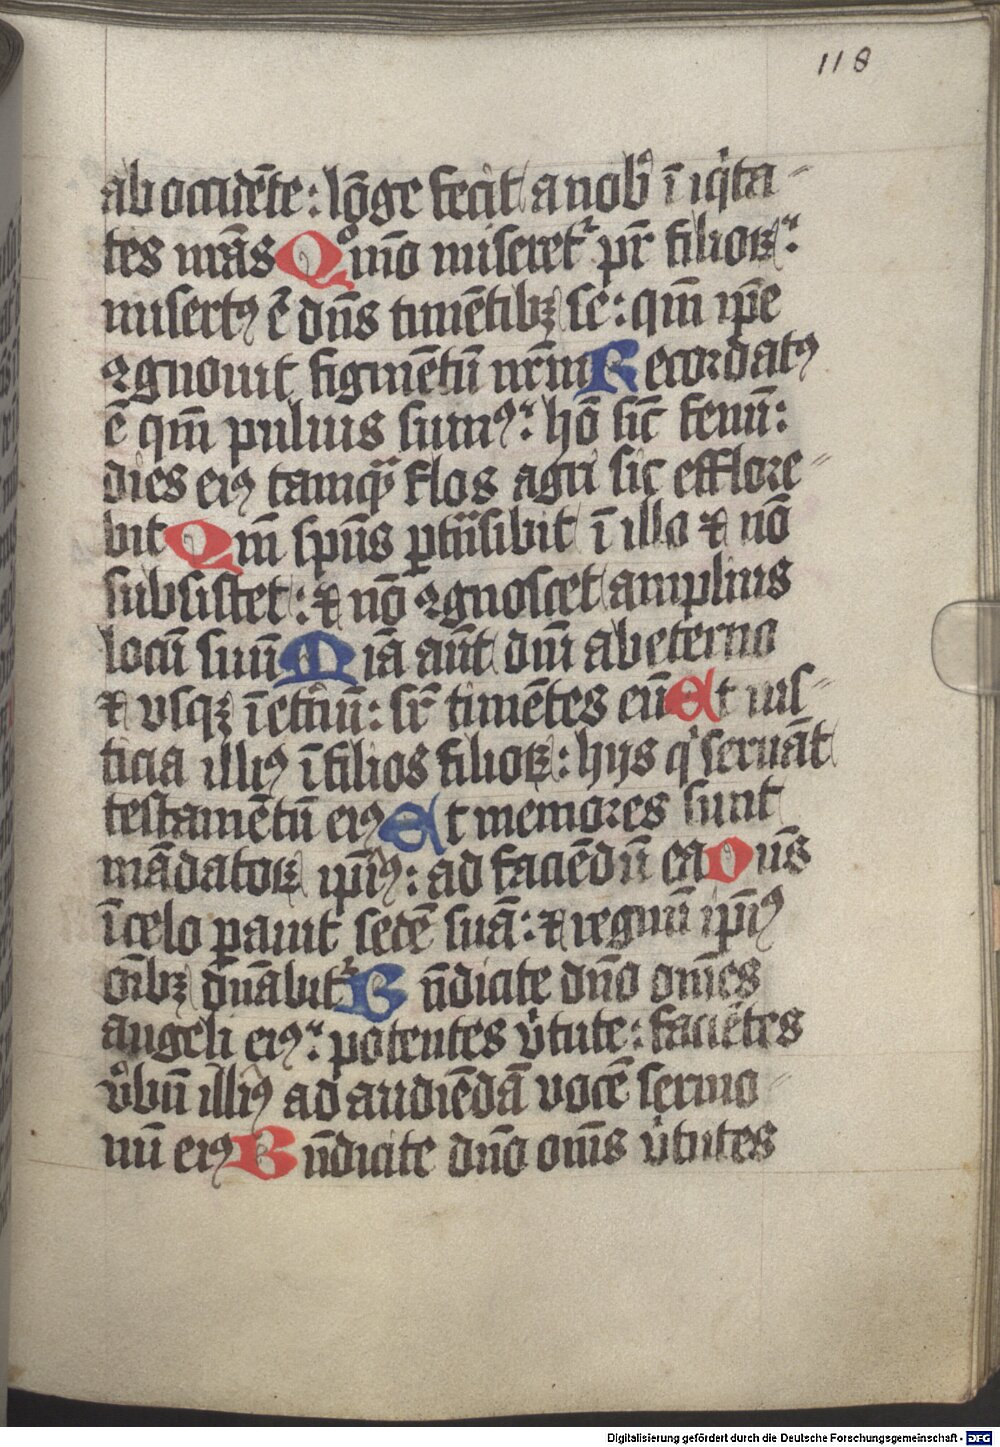 118
ab occidēte: lōge fecit a nob̾ ī iqͥta-
tes nr̄as Qͦmō miseret᷑ pr̄ filioꝝ:
misertꝰ ē dn̄s timētibꝫ se: qm̄ ip̄e
ꝯgnouit figmētū nr̄m Recordatꝰ
ē qm̄ puluis sumꝰ: hō sic̄ fenū:
dies eiꝰ tamqᷓ flos agri sic efflore-
bit Qm̄ sp̄us ꝑtn̄sibit ī illo ⁊ nō
subsistet: ⁊ nō ꝯgnoscet amplius
locū suū Mia᷑ aūt dn̄i ab eterno
⁊ vsqꝫ ī et̾nū: sr̄ timētes eū Et ius-
ticia illiꝰ ī filios filioꝝ: hijs qͥ seruāt
testamētū eiꝰ Et memores sunt
mādatoꝝ ip̄iꝰ: ad faciēdū ea Dn̄s
ī celo ꝑauit sedē suā: ⁊ regnū ip̄iꝰ
oībꝫ dn̄abit᷑ Bn̄dicite dn̄o om̄es
angeli eiꝰ: potentes v̾tute: faciētes
v̾bū illiꝰ ad audiēdā vocē sermo-
nū eiꝰ Bn̄dicite dn̄o om̄s v̾tutes
Digitalisierung gefördert durch die Deutsche Forschungsgemeinschaft - DFG